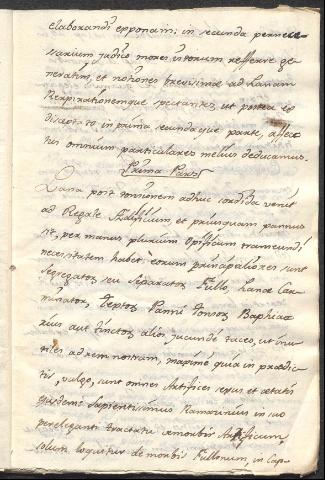 elaborandi exponam: in secunda pernece-
sarium judico mores istorum refferre ge-
neratim, et notiones brevissimæ ad Lanam
Respirationemque spectantes, ut postea ex
dictis in prima secundaque parte, affec-
tus omnium particulares melius deducamus.
Prima Pars
Lana post tonsionem adhuc sordida venit
ad Regale Ædificium, et priusquam pannus
sit, per manus plurium opificum transeundi
necessitatem habet: eorum principaliores sunt
Segregator, seu Separator, Fullo, Lanæ Car-
minator, Textor, Panni Tonsor, Baphiar-
ius aut tinctor, alios jucunde taceo, ut inu-
tiles ad rem nostram, maxime quia in prædic-
tis, vulgo, sunt omnes Artifices sexus et ætatis
ejusdem. Sapientissimus Ramazinus in suo
pereleganti tractatu de morbis Artificum,
solum loquitur de morbis Fullonum, in Cap-